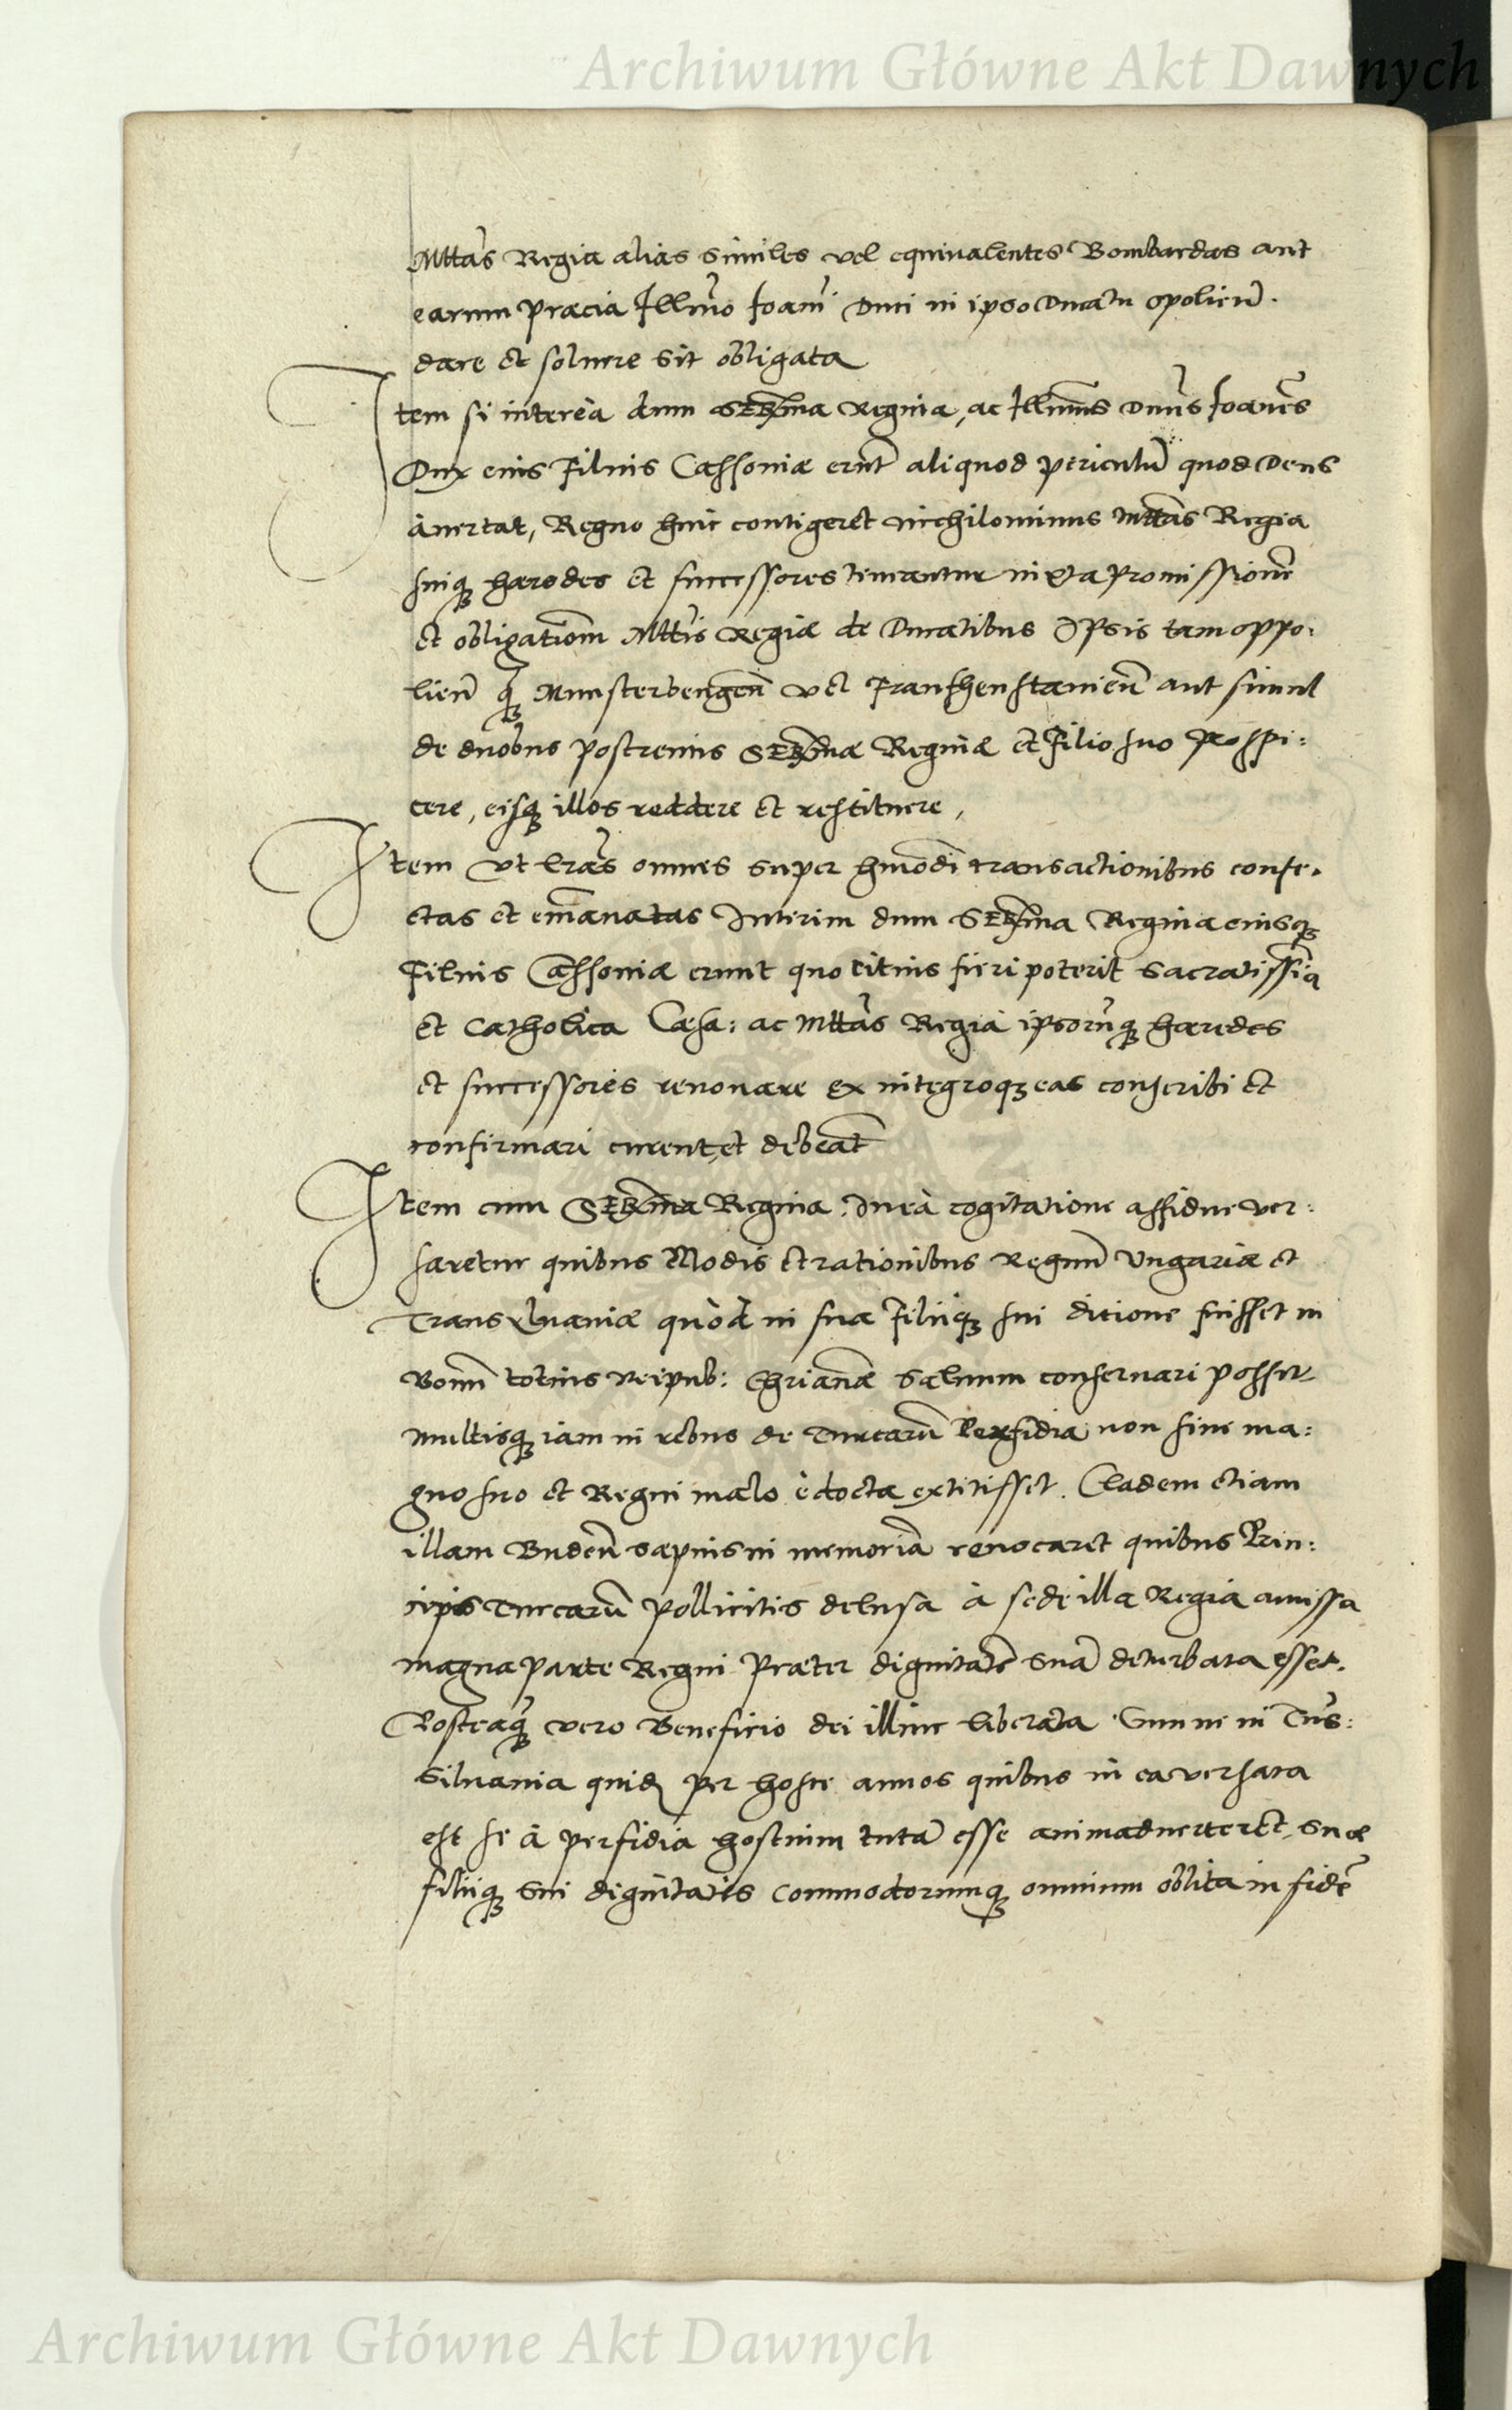 Archiwum Główne Akt Dawnych
Mttas Regia alias similes vel equivalentes Bombardas aut
earum praecia Illmo Joani Duci in ipso Ducatu opolien.
dare et soluere sit obligata
Item si interea dum SERma Regina, ac Illmus Dnus Joanes
Dux eius Filius Cassoniae erunt aliquod periculu quod Deus
auertat, Regno huic contigeret nichilominus Mttas Regia
suiq3 haeredes et successores teneantur iuxta promissione
et obligationem Mttis Regiae de Ducatibus Ipsis tam oppo:
lien q3 Munsterbergen vel Frankhenstanien aut simul
de duobus postremis SERmae Reginae et Filio suo prospi:
cere, eisq3 illos reddere et restituere,
Item Vt lras omnes super hmodi transactionibus confe.
ctas et emanatas Interim dum SERma Regina eiusq3
Filius Cassoniae erunt quo citius fieri poterit Sacratissia
et Catholica Caesa: ac Mttas Regia ipsoruq3 haeredes
et successores renouare ex integroq3 eas conscribi et
confirmari curent, et debeat
Item cum SERma Regina in ea cogitatione assidue ver:
saretur quibus Modis et rationibus Regnum Vngariae et
Transyluaniae quod in sua Filiiq3 sui ditione fuisset in
Bonum totius reipub: Chrianae saluum conseruari posset
multisq3 iam in rebus de Turcaru Perfidia non sine ma:
gno suo et Regni malo edocta extitisset. Cladem etiam
illam Buden saepius in memoria reuocaret quibus Prin:
cipis Turcaru pollicitis delusa a sede illa Regia amissa
magna parte Regni praeter dignitate sua deturbata esset.
Posteaq3 vero Beneficio dei illinc liberata ne in Trs:
siluania quid per hosce annos quibus in ea versata
est se a perfidia hostium tuta esse animaduerteret, Suae
filiiq3 sui dignitatis commodorumq3 omnium oblita in fide
Archiwum Główne Akt Dawnych